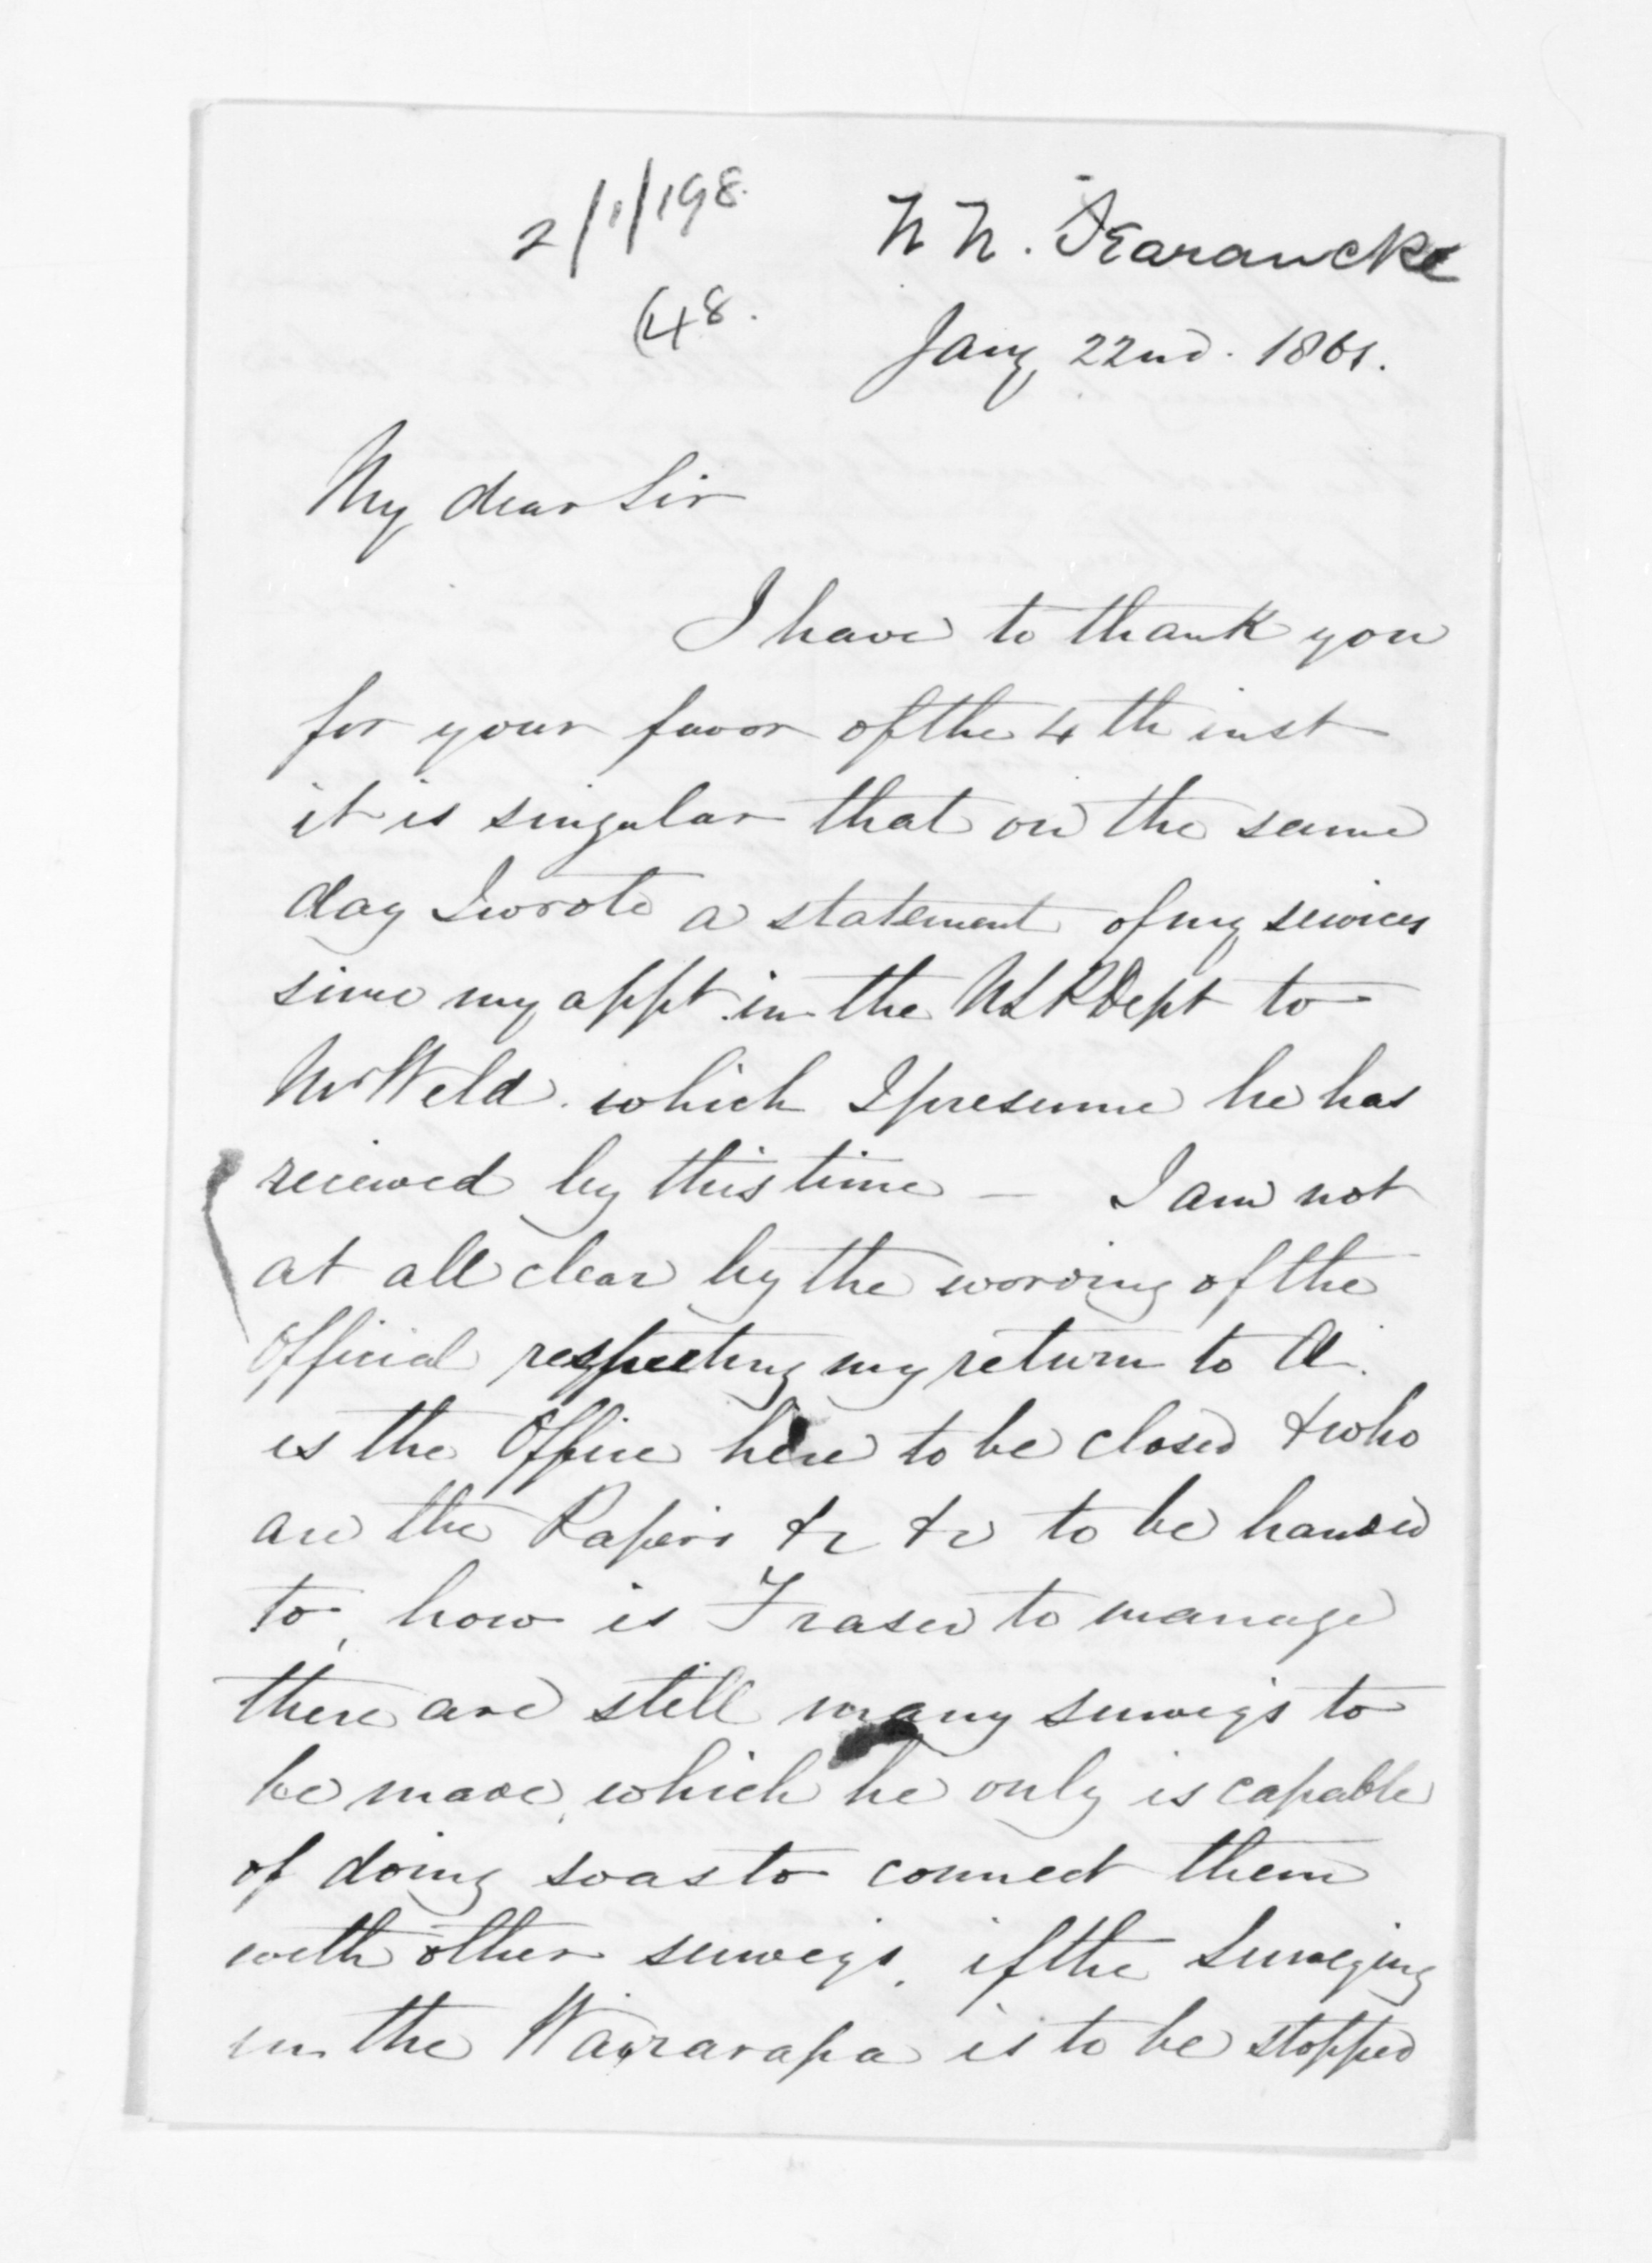 2/1/198.
(48.
W N. Searancke
Jany 22nd. 1861.
My dear Sir
I have to thank you
for your favor of the 4th inst
it is singular that on the same
day I wrote a statement of my services
since my appt. in the NLPDept to
Mr Weld. which I presume he has
recieved by this time — I am not
at all clear by the wording of the
Official respecting my return to A.
is the Office here to be closed & who
are the Papers &c &c to be handed
to, how is Fraser to manage
there are still many surveys to
be made, which he only is capable
of doing so as to connect them
with other surveys. if the Surveying
in the Wairarapa is to be stopped